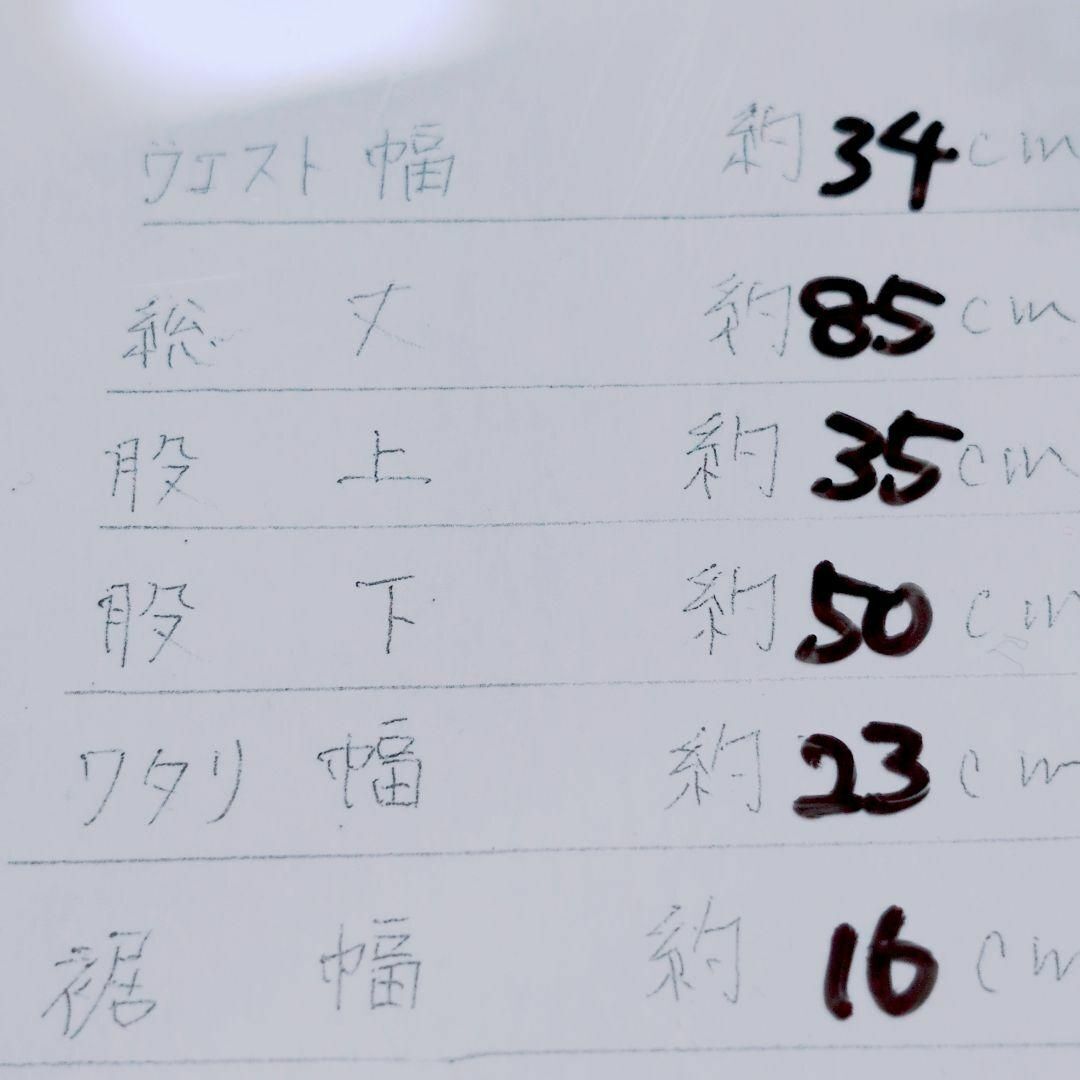 ウエスト幅 約34cm
総丈 約85cm
股上 約35cm
股下 約50cm
ワタリ幅 約23cm
裾幅 約16cm